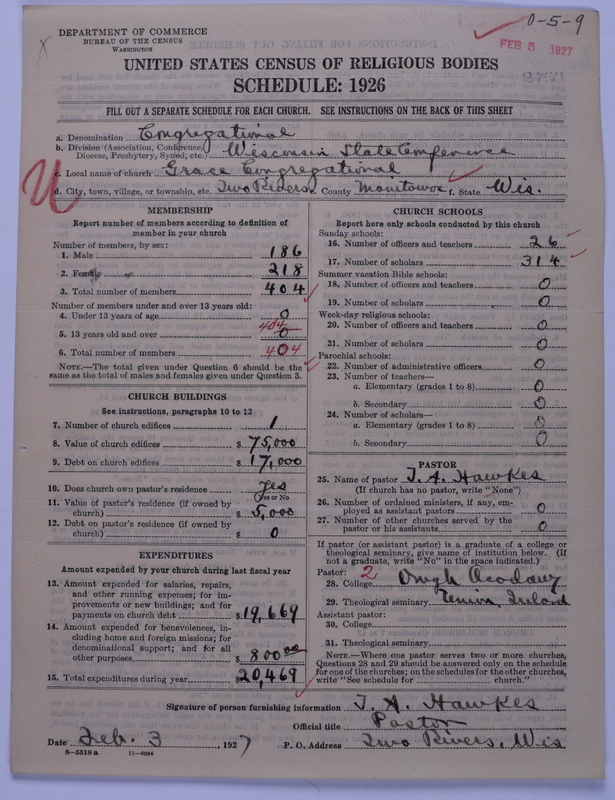 0-5-9
FEB 5 1927
DEPARTMENT OF COMMERCE
BUREAU OF THE CENSUS
WASHINGTON
UNITED STATES CENSUS OF RELIGIOUS BODIES
SCHEDULE: 1926
FILL OUT A SEPARATE SCHEDULE FOR EACH CHURCH. SEE INSTRUCTIONS ON THE BACK OF THIS SHEET
a. Denomination Congregational
b. Division (Association, Conference,
Diocese, Presbytery, Synod, etc.) Wisconsin State Conference
c. Local name of church Grace Congregational
d. City, town, village, or township, etc. Two Rivers County Manitowoc f. State Wis.
MEMBERSHIP
Report number of members according to definition of
member in your church
Number of members, by sex:
1. Male 186
2. Female 218
3. Total number of members 404
Number of members under and over 13 years old:
4. Under 13 years of age 0
404
5. 13 years old and over 0
6. Total number of members 404
NOTE.—The total given under Question 6 should be the
same as the total of males and females given under Question 3.
CHURCH BUILDINGS
See instructions, paragraphs 10 to 12
7. Number of church edifices 1
8. Value of church edifices $ 75,000
9. Debt on church edifices $ 17,000
10. Does church own pastor's residence Yes
Yes or No
11. Value of pastor's residence (if owned by
church) $ 5,000
12. Debt on pastor's residence (if owned by
church) $ 0
EXPENDITURES
Amount expended by your church during last fiscal year
13. Amount expended for salaries, repairs,
and other running expenses; for im-
provements or new buildings; and for
payments on church debt $ 19,669
14. Amount expended for benevolences, in-
cluding home and foreign missions; for
denominational support; and for all
other purposes $ 800.00
15. Total expenditures during year $ 20,469
CHURCH SCHOOLS
Report here only schools conducted by this church
Sunday schools:
16. Number of officers and teachers 26
17. Number of scholars 314
Summer vacation Bible schools:
18. Number of officers and teachers 0
19. Number of scholars 0
Week-day religious schools:
20. Number of officers and teachers 0
21. Number of scholars 0
Parochial schools:
22. Number of administrative officers 0
23. Number of teachers—
a. Elementary (grades 1 to 8) 0
b. Secondary 0
24. Number of scholars—
a. Elementary (grades 1 to 8) 0
b. Secondary 0
PASTOR
25. Name of pastor T. A. Hawkes
(If church has no pastor, write "None")
26. Number of ordained ministers, if any, em-
ployed as assistant pastors 0
27. Number of other churches served by the
pastor or his assistants 0
If pastor (or assistant pastor) is a graduate of a college or
theological seminary, give name of institution below. (If
not a graduate, write "No" in the space indicated.)
Pastor: 2
28. College Academy
29. Theological seminary Ireland
Assistant pastor:
30. College
31. Theological seminary
NOTE.—Where one pastor serves two or more churches,
Questions 28 and 29 should be answered only on the schedule
for one of the churches; on the schedules for the other churches,
write "See schedule for church."
Signature of person furnishing information T. A. Hawkes
Official title Pastor
Date Feb. 3, 1927 P. O. Address Two Rivers, Wis
8-5518a 11-9054